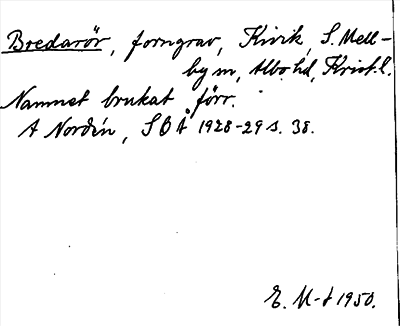 Bredarör, forngrav, Kivik, S. Mell-
by sn, Albo hd, Krist. l.
Namnet brukat förr.
A Nordén, SOÅ 1928-29 s. 38.
E. M-t 1950.